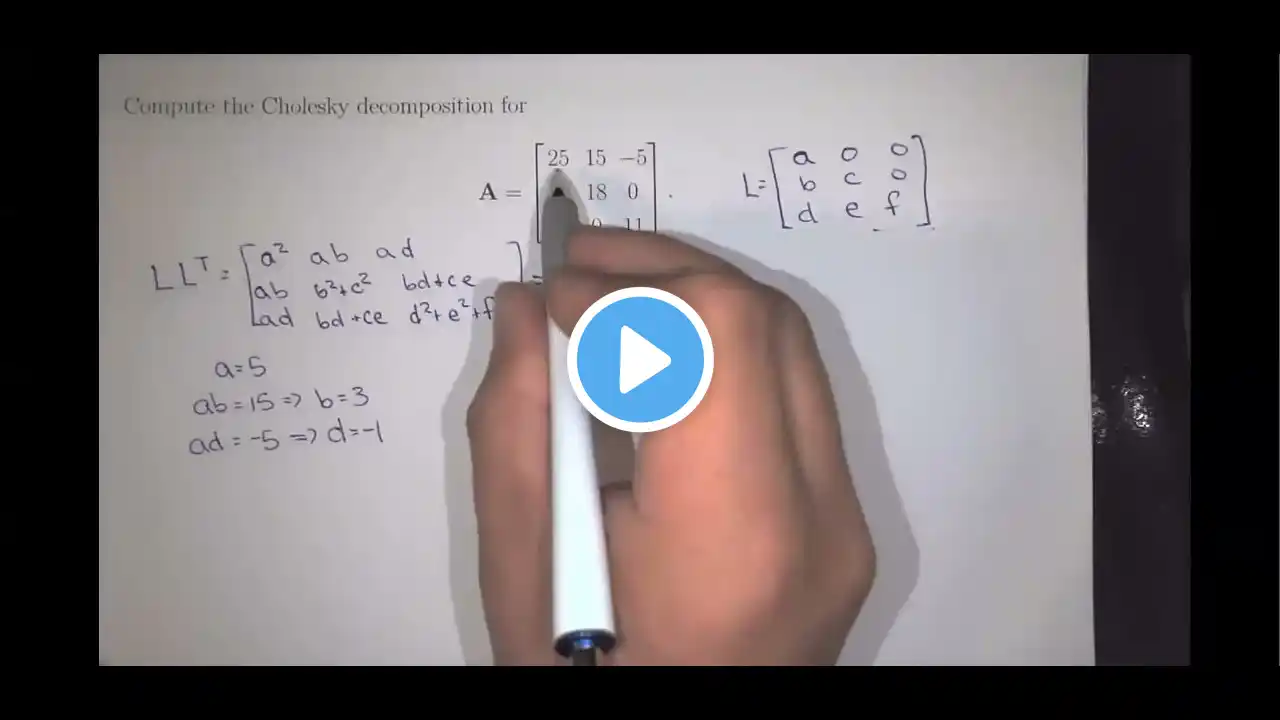 Compute the Cholesky decomposition for
A = [25 15 −5
18 0
0 11] .
L= [a 0 0
b c 0
d e f]
LLᵀ = [a² ab ad
ab b²+c² bd+ce
ad bd+ce d²+e²+f] =
a=5
ab=15 => b=3
ad = -5 => d=-1